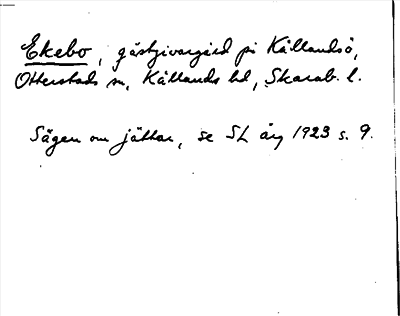 Ekebo, gästgivargård på Kållandsö,
Otterstads sn, Kållands hd, Skarab. l.
Sägen om jättar, se SL årg 1923 s. 9.